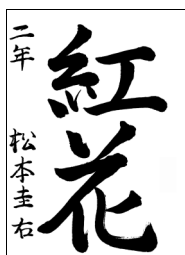 紅花
二年 松本圭右